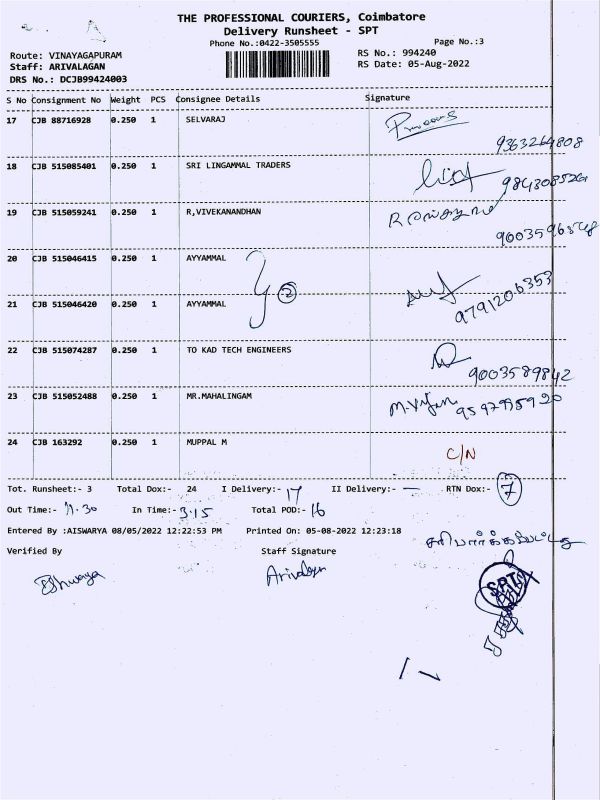 THE PROFESSIONAL COURIERS, Coimbatore
Delivery Runsheet - SPT
Phone No.:0422-3505555
Page No.:3
Route: VINAYAGAPURAM
RS No.: 994240
Staff: ARIVALAGAN
RS Date: 05-Aug-2022
DRS No.: DCJB99424003
S No Consignment No Weight PCS Consignee Details Signature
17 CJB 88716928 0.250 1 SELVARAJ
9363264808
18 CJB 515085401 0.250 1 SRI LINGAMMAL TRADERS
19 CJB 515059241 0.250 1 R,VIVEKANANDHAN
20 CJB 515046415 0.250 1 AYYAMMAL
2
9791206353
21 CJB 515046420 0.250 1 AYYAMMAL
22 CJB 515074287 0.250 1 TO KAD TECH ENGINEERS
9003589842
23 CJB 515052488 0.250 1 MR.MAHALINGAM
9597995920
24 CJB 163292 0.250 1 MUPPAL M
C/N
Tot. Runsheet:- 3 Total Dox:- 24 I Delivery:- 17 II Delivery:- — RTN Dox:- 7
Out Time:- 11.30 In Time:- 3.15 Total POD:- 16
Entered By :AISWARYA 08/05/2022 12:22:53 PM Printed On: 05-08-2022 12:23:18
சரிபார்க்கப்பட்டது
Verified By Staff Signature
Arivalagn
SPT